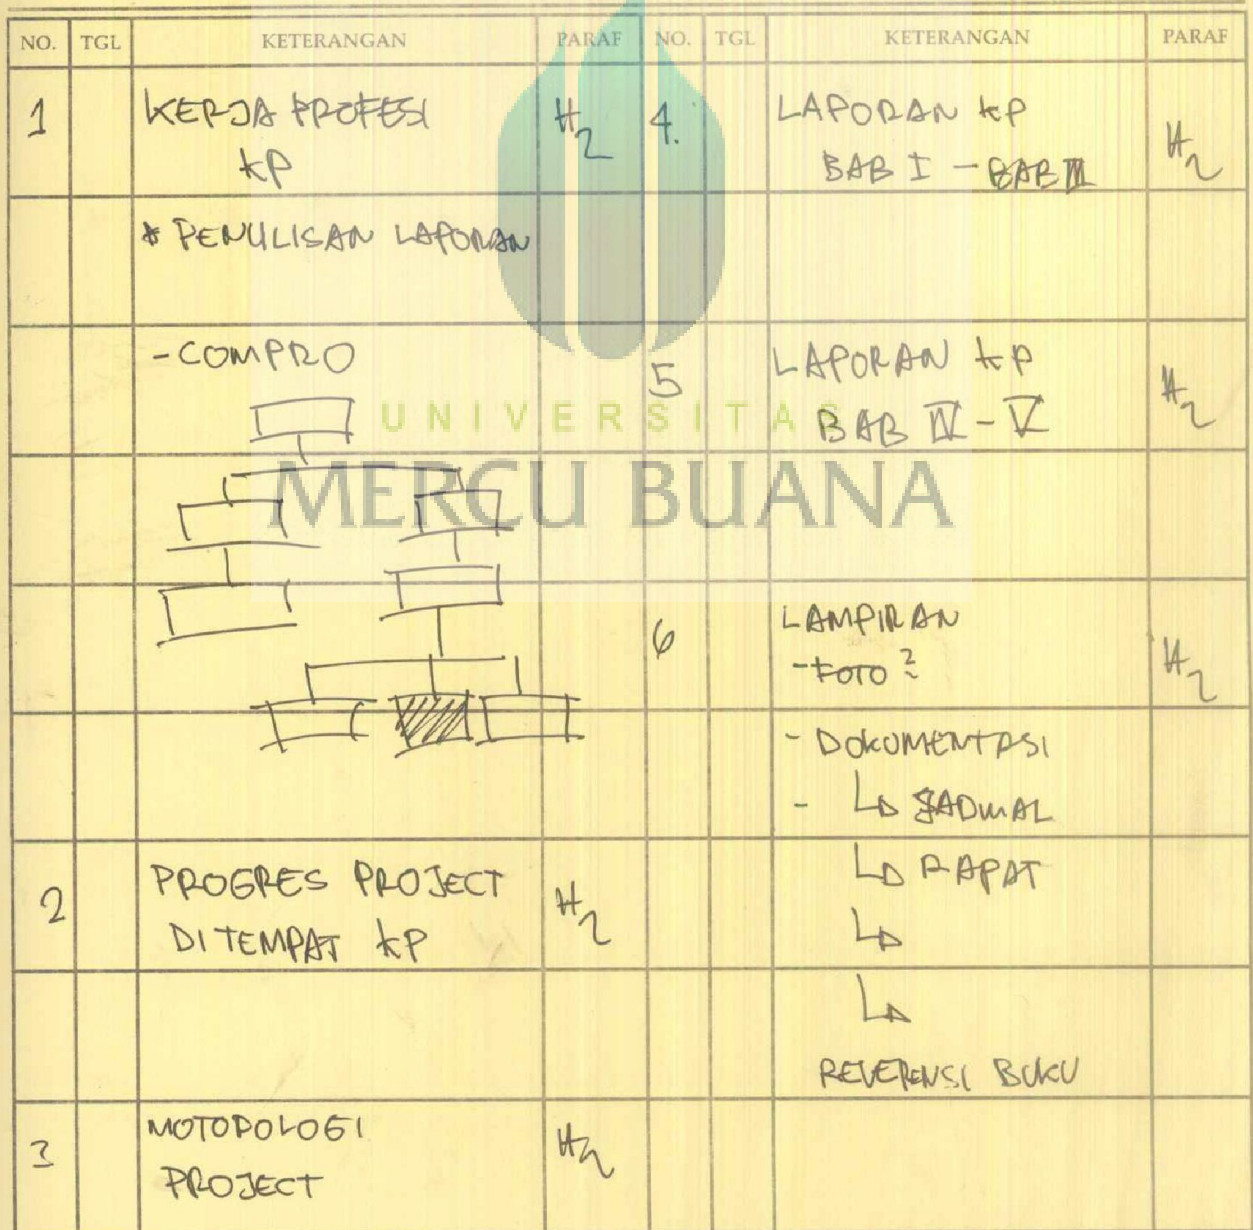 NO. TGL KETERANGAN PARAF NO. TGL KETERANGAN PARAF
1 KERJA PROFESI
KP
* PENULISAN LAPORAN
- COMPRO
2 PROGRES PROJECT
DI TEMPAT KP
3 MOTODOLOGI
PROJECT
4. LAPORAN KP
BAB I - BAB III
5 LAPORAN KP
BAB IV - V
6 LAMPIRAN
- FOTO 2
- DOKUMENTASI
- JADWAL
RAPAT
REVERENSI BUKU
UNIVERSITAS
MERCU BUANA